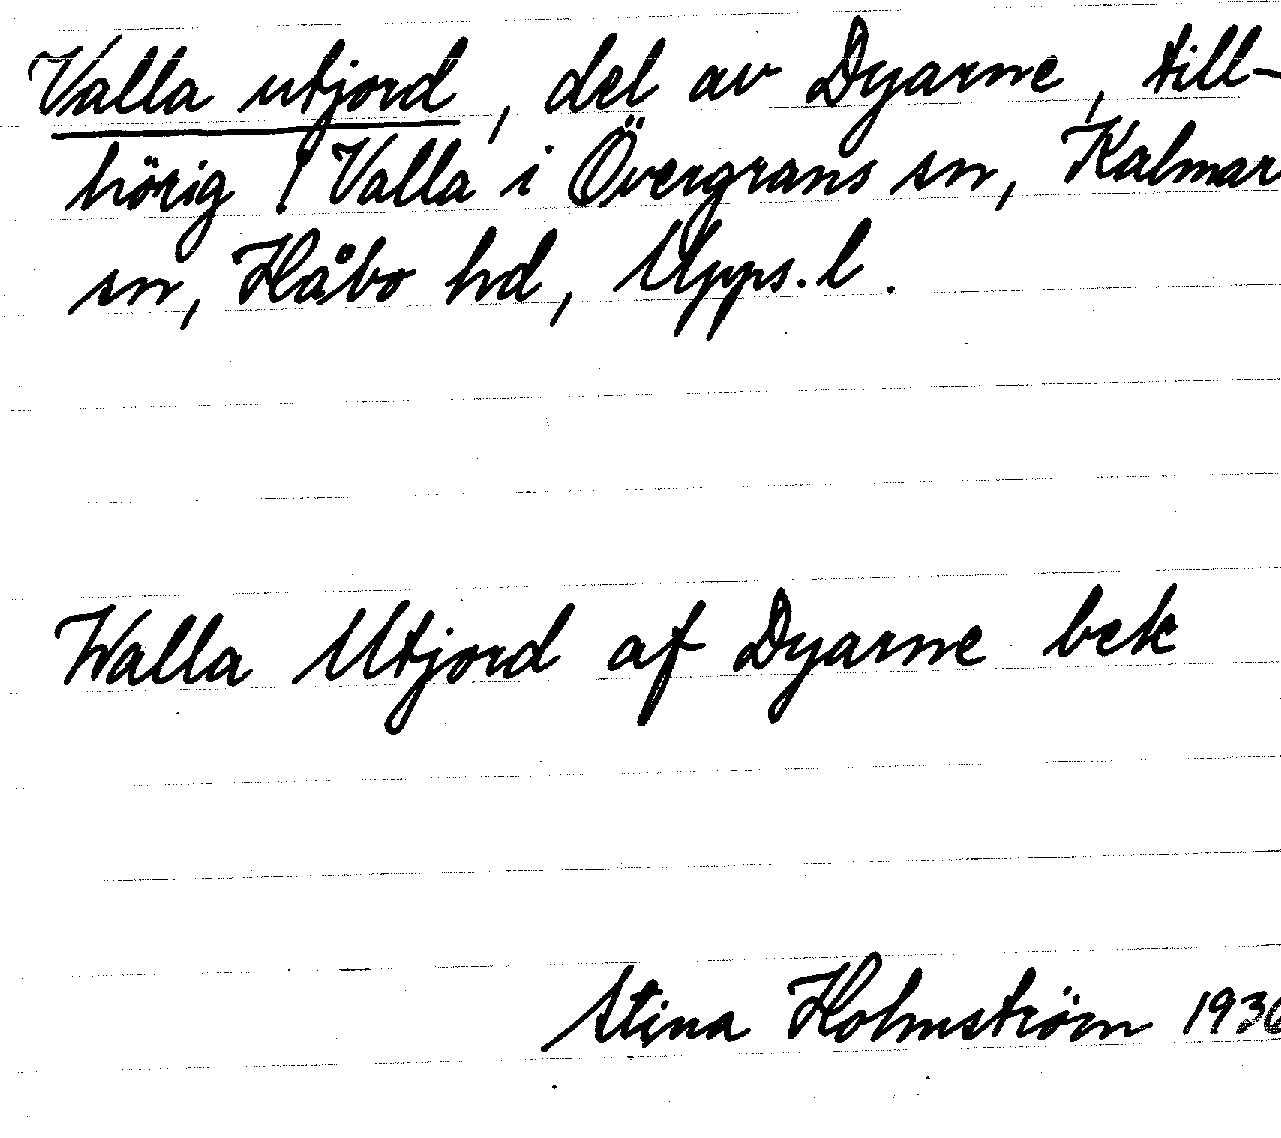 Valla utjord, del av Dyarne, till-
hörig / Valla i Övergrans sn, Kalmar
sn, Håbo hd, Upps. l.
Walla Utjord af Dyarne bek
Stina Holmström 1936